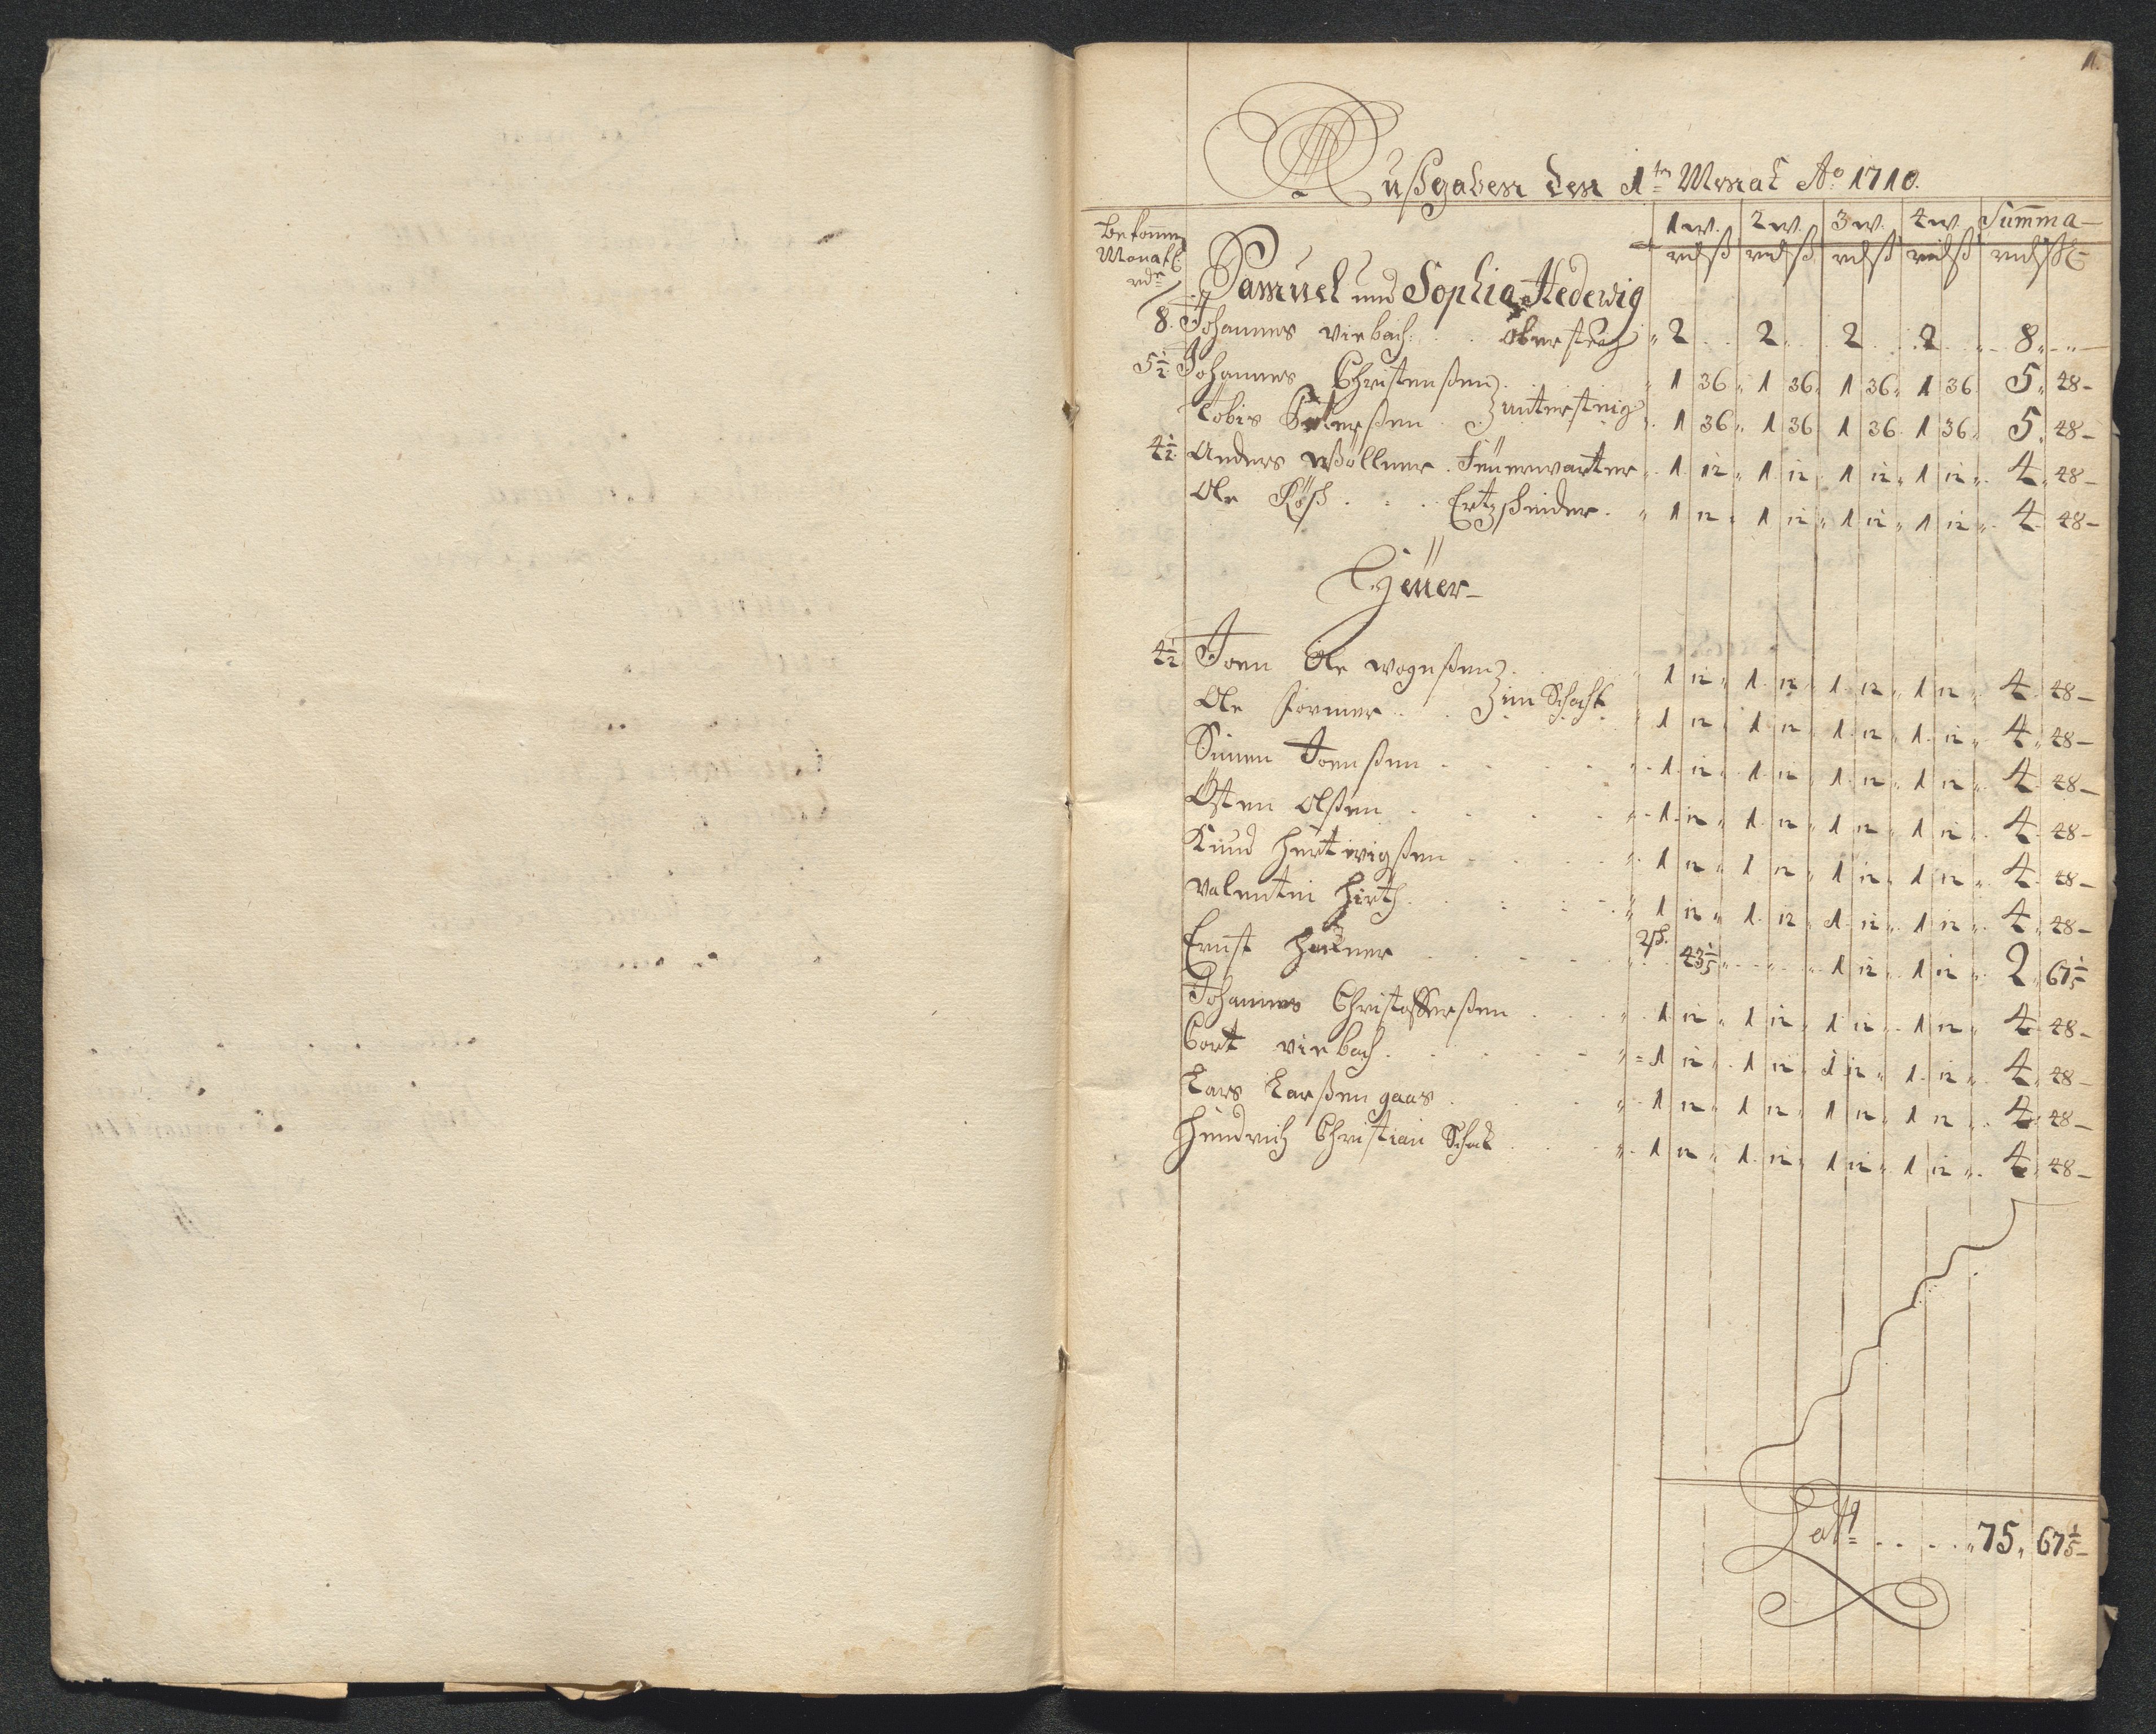 1.
Außgaben den 1tn Monat Ao 1710.
Bekommen Monatl. rdr
1 w. 2 w. 3 w. 4 w. Summa
rd ß rd ß rd ß rd ß rd ß
Samuel und Sophia Hedewig
8. Johannes Viebach . . Obersteig " 2 . . 2 . . 2 . . 2 . . 8 " - " -
5½ Johannes Christenßen 1 36 " 1 36 " 1 36 " 1 36 " 5 " 48 -
Tobis . } untersteig " 1 36 " 1 36 1 36 1 36 " 5 " 48 -
4½ Anders Wöllner . Feuerwarter " 1 12 " 1 12 " 1 12 " 1 12 " 4 " 48 -
Ole Röß . . . Ertzscheider . " 1 12 " 1 12 " 1 12 " 1 12 " 4 " 48 -
Heuer -
4½ Joen Ole wognßen . 1 12 " 1 12 " 1 12 " 1 12 " 4 " 48 -
Ole . . } im Schacht " 1 12 " 1 12 " 1 12 " 1 12 " 4 " 48 -
Simen Joenßen . . . . " 1 12 " 1 12 " 1 12 " 1 12 " 4 48 -
Östen Olßen . . . . " 1 12 " 1 12 " 1 12 " 1 12 " 4 " 48 -
Knud Hertwigßen . . . " 1 12 " 1 12 " 1 12 " 1 12 " 4 " 48 -
Valentin Hirth . . . " 1 12 " 1 12 " 1 12 " 1 12 " 4 " 48 -
Ernst . . . . 2ß. 43⅕ " . . . 1 12 " 1 12 " 2 " 67⅕
Johannes Christofferßen . . . " 1 12 " 1 12 " 1 12 " 1 12 " 4 48 -
Cort Viebach . . . . " 1 12 " 1 12 " 1 12 " 1 12 " 4 " 48 -
Lars Larßen gaas . . . " 1 12 " 1 12 " 1 12 " 1 12 " 4 " 48 -
Hendrich Christian Schak . . . " 1 12 " 1 12 " 1 12 " 1 12 " 4 " 48 -
Latt . . . . " 75 " 67⅕ -